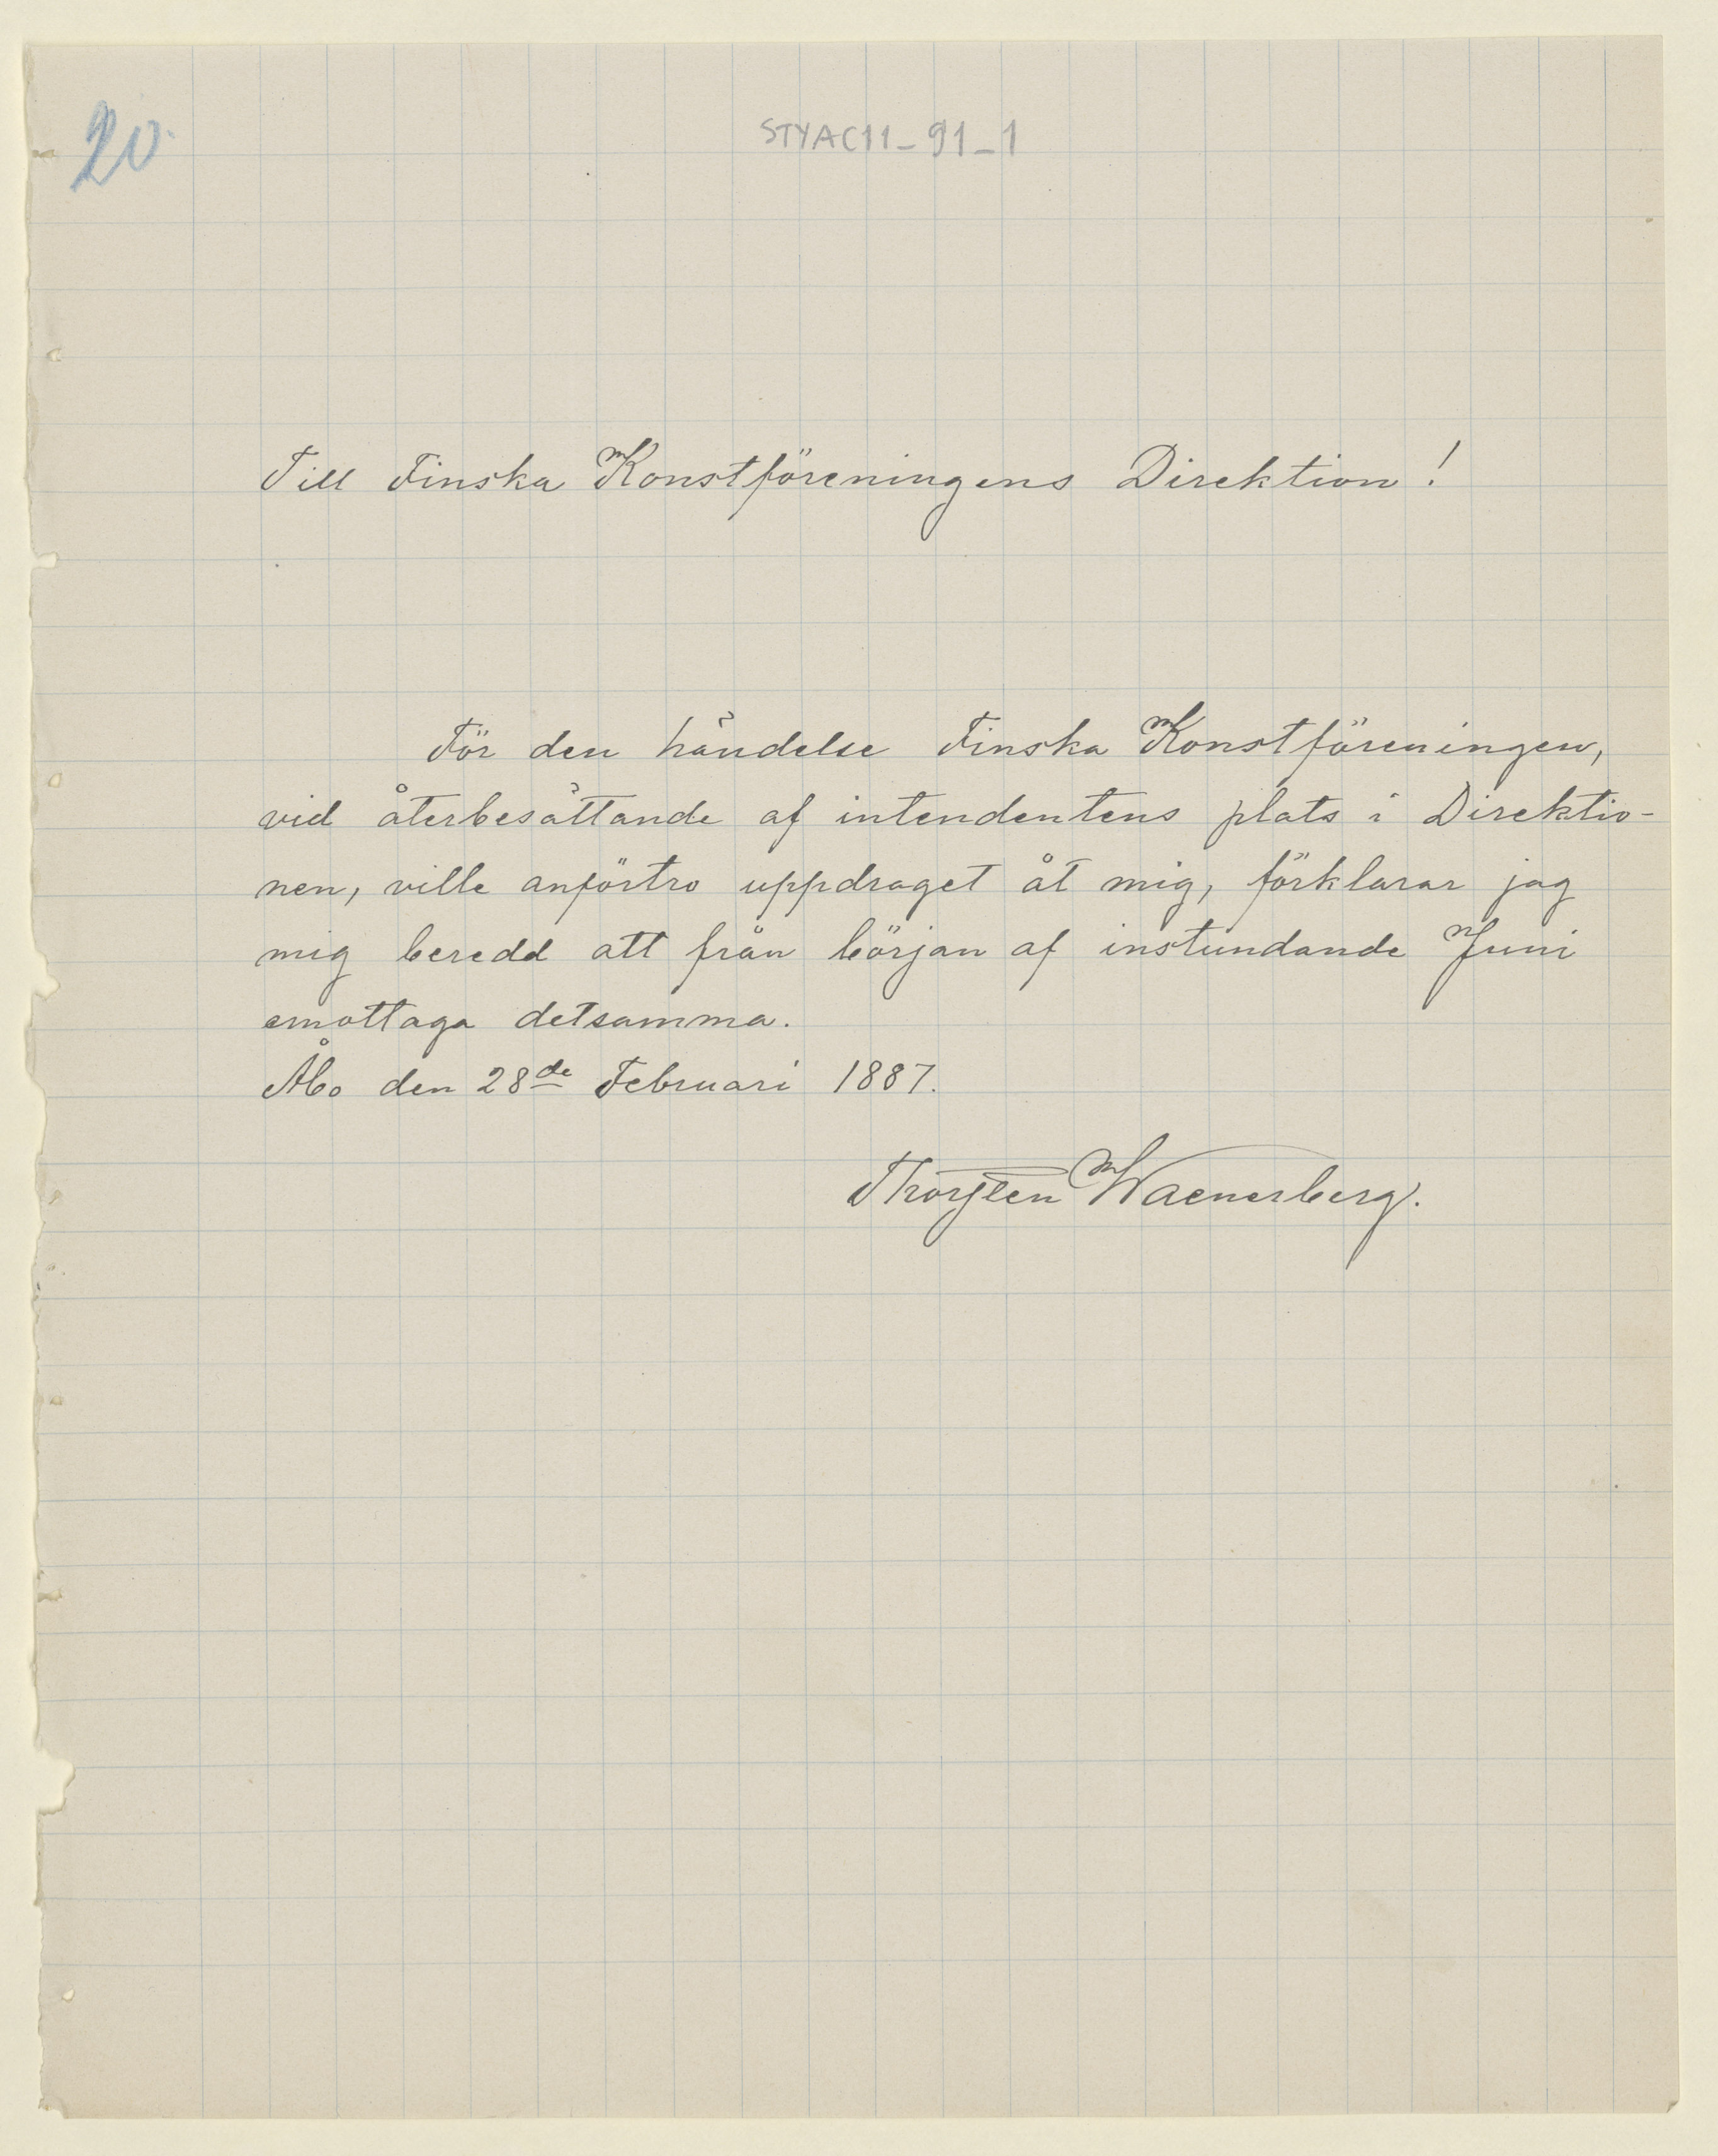 20.
STYAC11_91_1
Till Finska Konstföreningens Direktion!
För den händelse Finska Konstföreningen,
vid återbesättande af intendentens plats i Direktio-
nen, ville anförtro uppdraget åt mig, förklarar jag
mig beredd att från början af instundande Juni
emottaga detsamma.
Åbo den 28de Februari 1887.
Thorsten Waenerberg.